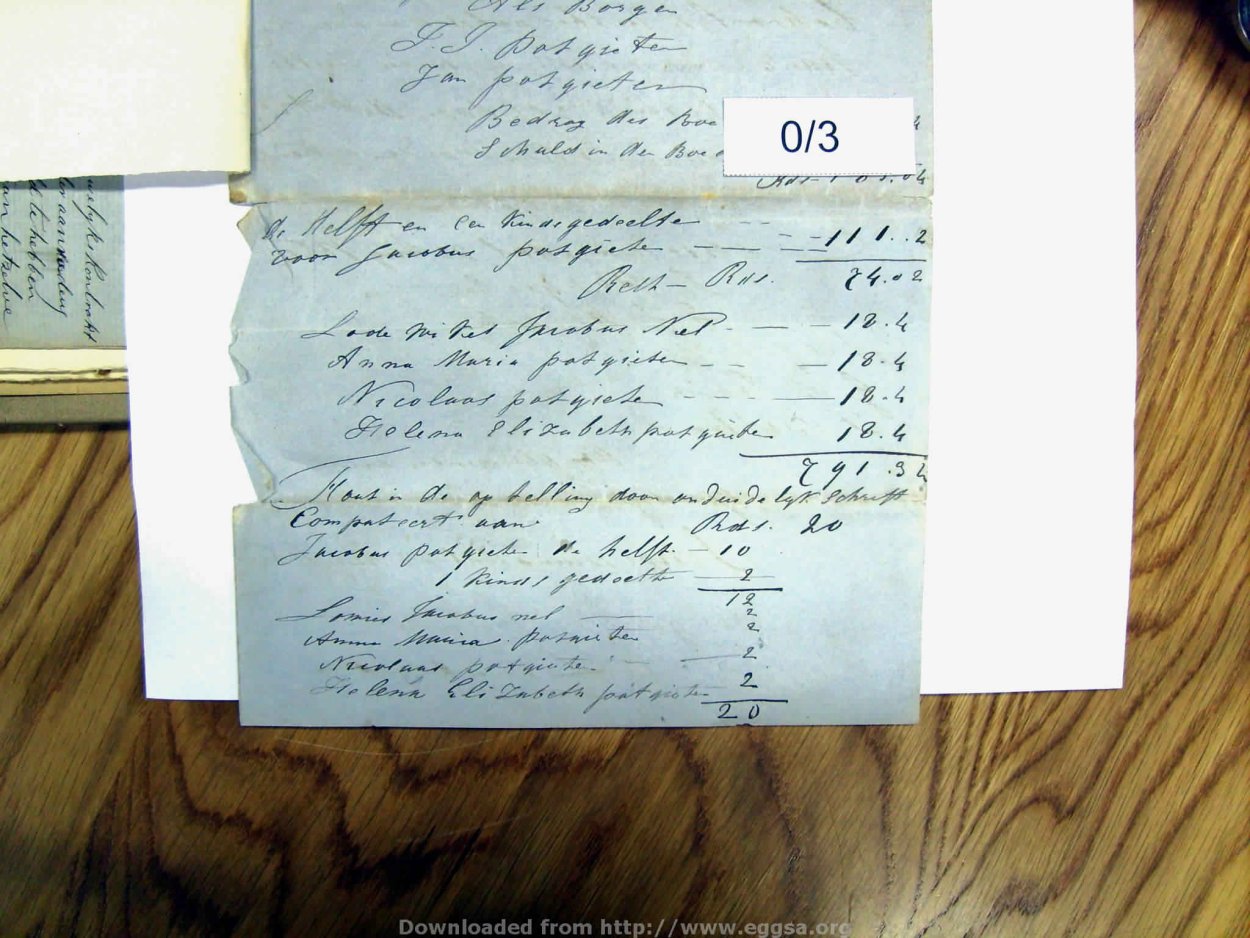 Als Borgen
F. J. potgieter
Jan potgieter
Bedrag des Boe
Schuld in den Boe
0/3
Rds 185.04
de Helft en een Kindsgedeelte - - - - 111..2
voor Jacobus potgieter - - - -
Rest - Rds. 74.02
Lodewikes Jacobus Nel - - - 18.4
Anna Maria potgieter - - - 18.4
Nicolaas potgieter - - - 18.4
Helena Elizabeth potgieter 18.4
791.34
Fout in de op telling door onduidelyk Schrift
Compateert aan Rds. 20
Jacobus potgieter de helft - 10
1 Kinds gedeelte 2
12
Jacobus nel 2
Anna Maria potgieter 2
Nicolaas potgieter 2
Helena Elizabeth potgieter 2
20
uwelyks Kontrakt
aan
d te hebben
an hetzelve
Downloaded from http://www.eggsa.org